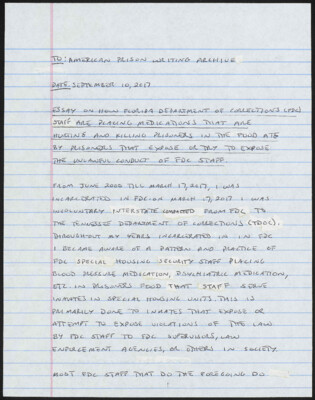 TO: AMERICAN PRISON WRITING ARCHIVE
DATE: SEPTEMBER 10, 2017
ESSAY ON HOW FLORIDA DEPARTMENT OF CORRECTIONS (FDC)
STAFF ARE PLACING MEDICATIONS THAT ARE
HURTING AND KILLING PRISONERS IN THE FOOD ATE
BY PRISONERS THAT EXPOSE OR TRY TO EXPOSE
THE UNLAWFUL CONDUCT OF FDC STAFF.
FROM JUNE 2000 TILL MARCH 17, 2017, I WAS
INCARCERATED IN FDC. ON MARCH 17, 2017 I WAS
INVOLUNTARY INTERSTATE COMPACTED FROM FDC TO
THE TENNESSEE DEPARTMENT OF CORRECTIONS (TDOC).
THROUGHOUT MY YEARS INCARCERATED IN FDC
I BECAME AWARE OF A PATTERN AND PRACTICE OF
FDC SPECIAL HOUSING SECURITY STAFF PLACING
BLOOD PRESSURE MEDICATION, PSYCHIATRIC MEDICATION,
ETC. IN PRISONERS FOOD THAT STAFF SERVE
INMATES IN SPECIAL HOUSING UNITS. THIS IS
PRIMARILY DONE TO INMATES THAT EXPOSE OR
ATTEMPT TO EXPOSE VIOLATIONS OF THE LAW
BY FDC STAFF TO FDC SUPERVISORS, LAW
ENFORCEMENT AGENCIES, OR OTHERS IN SOCIETY.
MOST FDC STAFF THAT DO THE FOREGOING DO